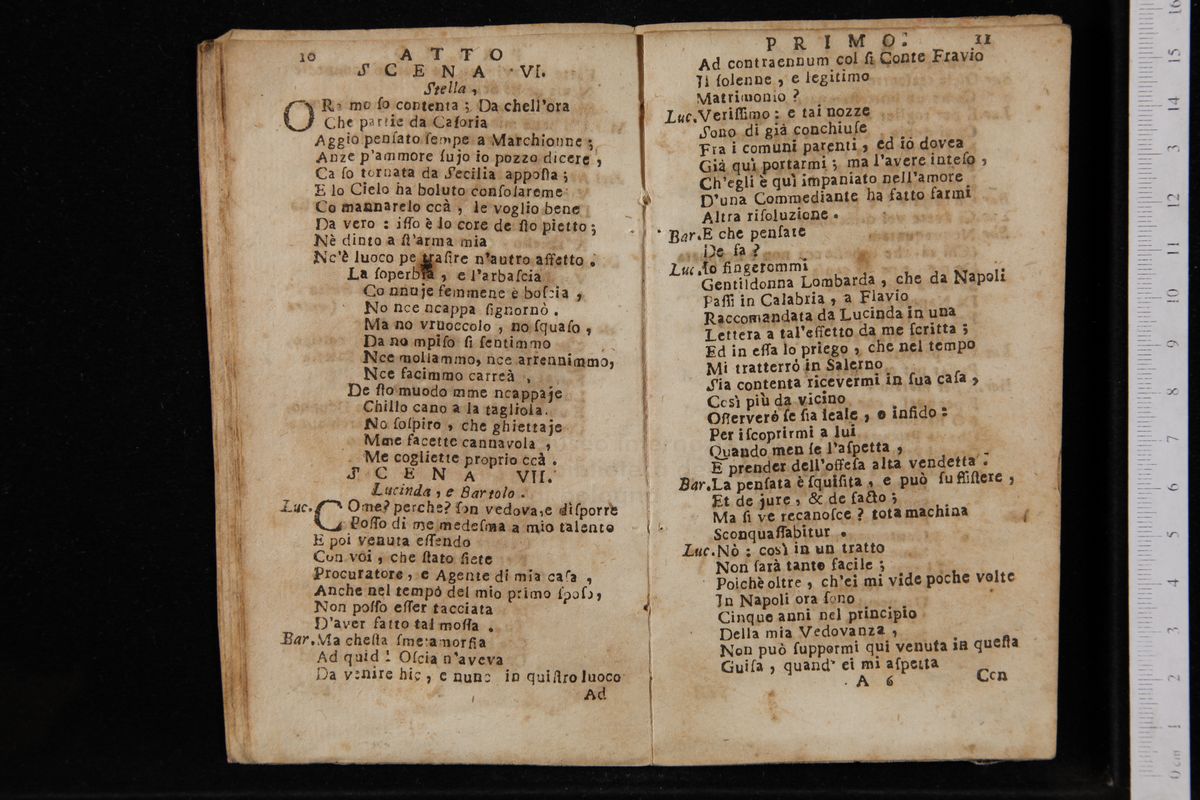 10 ATTO
SCENA VI.
Stella,
ORa mo ſo contenta; Da chell'ora
Che partie da Caſoria
Aggio penſato ſempe a Marchionne;
Anze p'ammore ſujo io pozzo dicere,
Ca ſo tornata da Secilia appoſta;
E lo Cielo ha boluto conſolareme
Co mannarelo ccà, le voglio bene
Da vero: iſſo è lo core de ſto pietto;
Nè dinto a ſt'arma mia
Nc'è luoco pe traſire n'autro affetto.
La ſoperbia, e l'arbaſcia
Co nnuje femmene è boſcia,
No nce ncappa ſignornò.
Ma no vruoccolo, no ſquaſo,
Da no mpiſo ſi ſentimmo
Nce mollammo, nce arrennimmo,
Nce facimmo carreà,
De ſto muodo mme ncappaje
Chillo cano a la tagliola.
No ſoſpiro, che ghiettaje
Mme facette cannavola,
Me cogliette proprio ccà.
SCENA VII.
Lucinda, e Bartolo.
Luc. COme? perche? ſon vedova, e diſporre
Poſſo di me medeſma a mio talento
E poi venuta eſſendo
Con voi, che ſtato ſiete
Procuratore, e Agente di mia caſa,
Anche nel tempo del mio primo ſpoſo,
Non poſſo eſſer tacciata
D'aver fatto tal moſſa.
Bar. Ma cheſta ſmetamorfia
Ad quid! Oſcia n'aveva
Da venire hic, e nunc in quiſtro luoco
Ad
PRIMO. 11
Ad contraennum col ſi Conte Fravio
Ii ſolenne, e legitimo
Matrimonio?
Luc. Veriſſimo: e tai nozze
Sono di già conchiuſe
Fra i comuni parenti, ed io dovea
Già quì portarmi; ma l'avere inteſo,
Ch'egli è quì impaniato nell'amore
D'una Commediante ha fatto farmi
Altra riſoluzione.
Bar. E che penſate
De fa?
Luc. Io fingerommi
Gentildonna Lombarda, che da Napoli
Paſſi in Calabria, a Flavio
Raccomandata da Lucinda in una
Lettera a tal'effetto da me ſcritta;
Ed in eſſa lo priego, che nel tempo
Mi tratterrò in Salerno
Sia contenta ricevermi in ſua caſa,
Così più da vicino
Oſſerverò ſe ſia leale, o infido:
Per iſcoprirmi a lui
Quando men ſe l'aſpetta,
E prender dell'offeſa alta vendetta.
Bar. La penſata è ſquiſita, e può ſuſſiſtere,
Et de jure, & de facto;
Ma ſi ve recanoſce? tota machina
Sconquaſſabitur.
Luc. Nò: così in un tratto
Non ſarà tanto facile;
Poichè oltre, ch'ei mi vide poche volte
In Napoli ora ſono
Cinque anni nel principio
Della mia Vedovanza,
Non può ſuppormi qui venuta in queſta
Guiſa, quand' ei mi aſpetta
A 6 Con